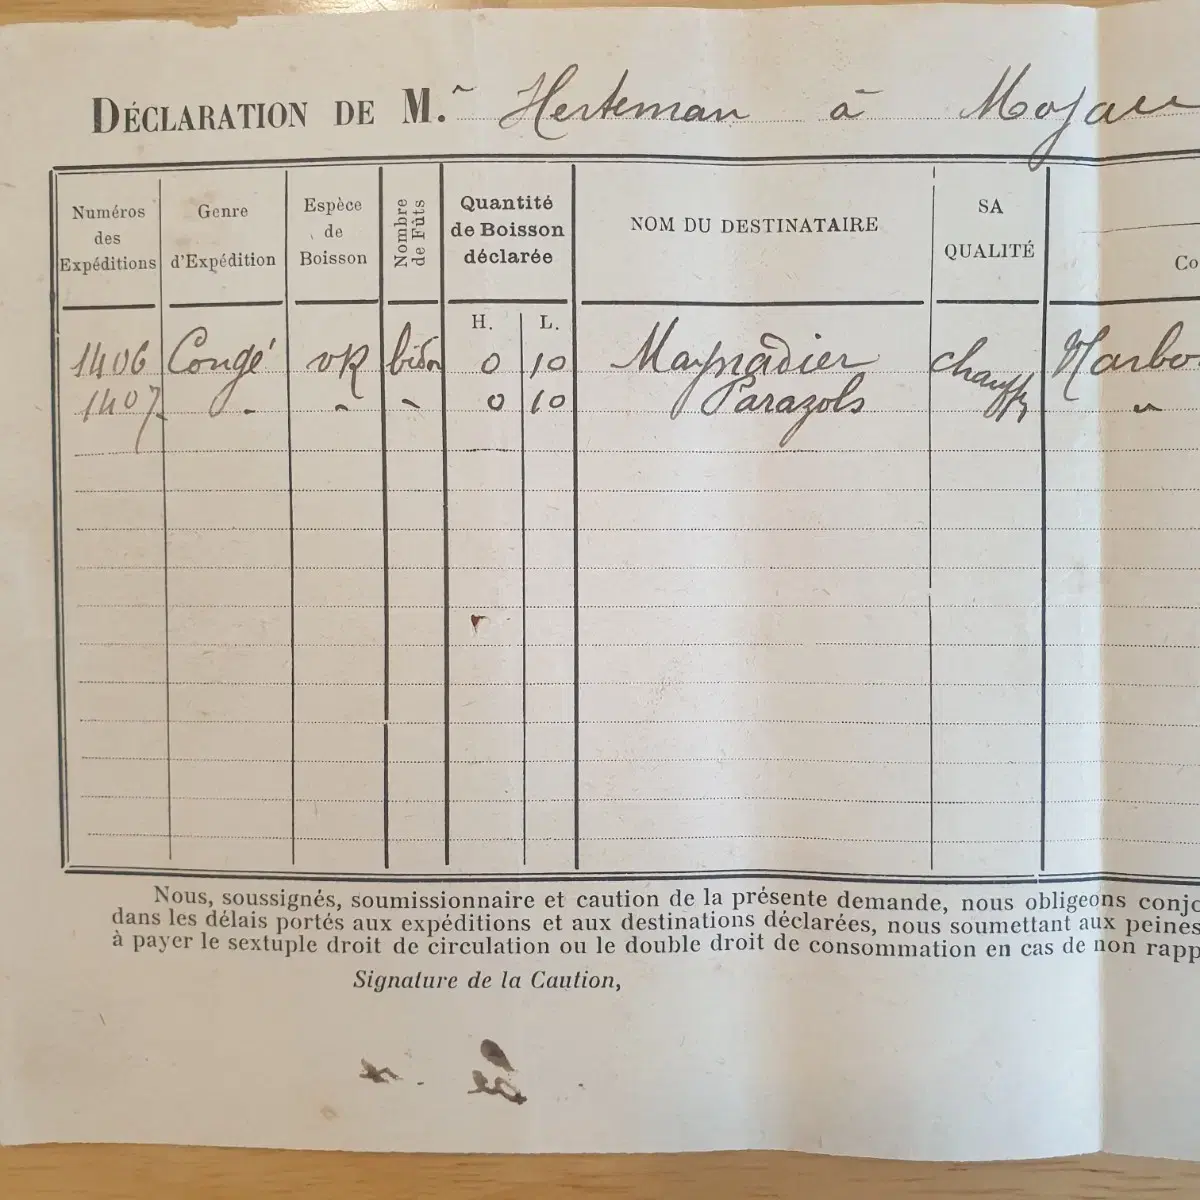 DÉCLARATION DE M. Herteman à Mojac
Numéros des Expéditions
Genre d'Expédition
Espèce de Boisson
Nombre de Fûts
Quantité de Boisson déclarée
NOM DU DESTINATAIRE
SA QUALITÉ
Co
H. L.
1406 Congé vR bidon 0 10 Maynadier chauffr Narbo
1407 - - - 0 10 Parazols "
Nous, soussignés, soumissionnaire et caution de la présente demande, nous obligeons conjo
dans les délais portés aux expéditions et aux destinations déclarées, nous soumettant aux peines
à payer le sextuple droit de circulation ou le double droit de consommation en cas de non rapp
Signature de la Caution,